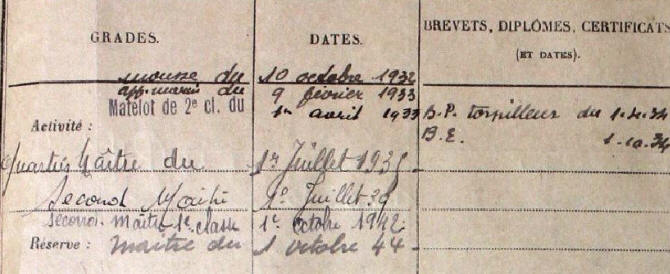 GRADES. DATES. BREVETS, DIPLÔMES, CERTIFICATS
(ET DATES).
mousse du 10 octobre 1932
app. marin du 9 février 1933
Matelot de 2e cl. du 1er avril 1933 B.P. torpilleur du 1.4.34
Activité : B.E. 1.10.34
Quartier Maître du 1er Juillet 1935
Second Maître 1er Juillet 39
Second Maître 1e classe 1er Octobre 1942
Réserve : Maître du 1 octobre 44